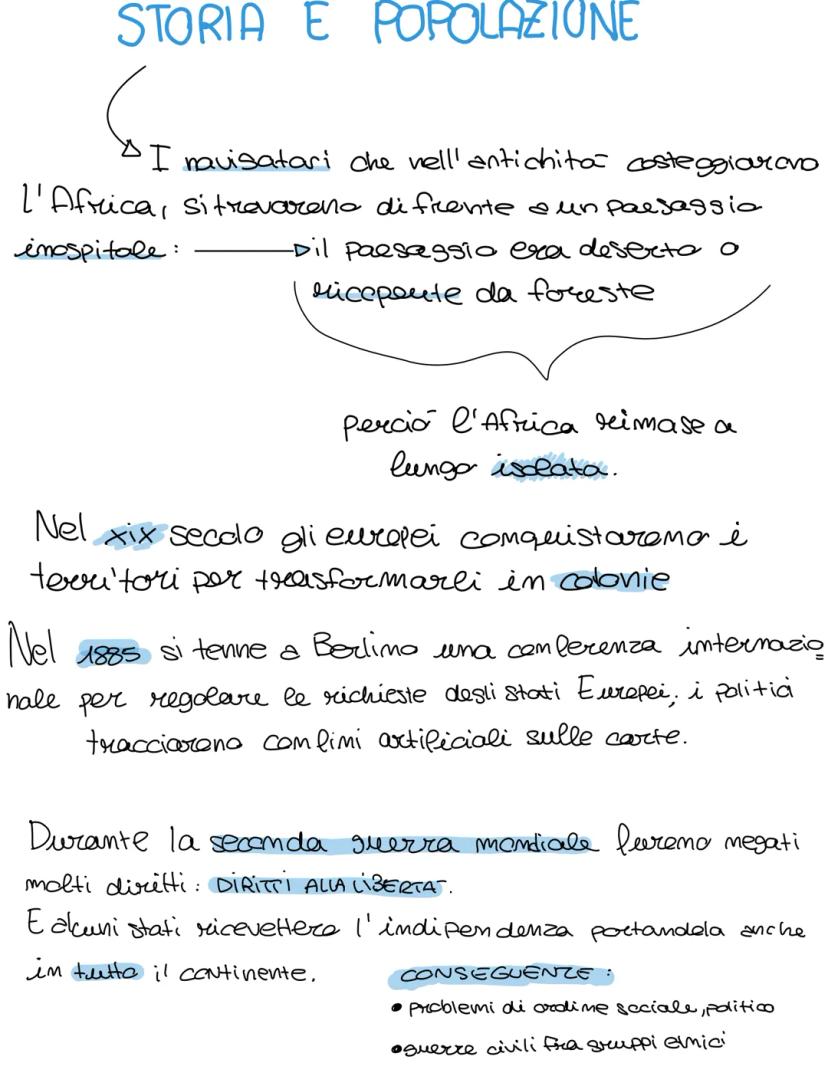 STORIA E POPOLAZIONE
I navigatori che nell'antichità costeggiarono
l'Africa, si trovarono di frente a un paesaggio
inospitale: il paesaggio era deserto o
ricoperto da foreste
perciò l'Africa rimase a
lungo isolata.
Nel xix secolo gli europei conquistarono i
territori per trasformarli in colonie
Nel 1885 si tenne a Berlino una conferenza internazio
nale per regolare le richieste degli stati Europei; i politici
tracciarono confini artificiali sulle carte.
Durante la seconda guerra mondiale furono negati
molti diritti: DIRITTI ALLA LIBERTA'.
E alcuni stati ricevettero l'indipendenza portandola anche
in tutto il continente. CONSEGUENZE:
• problemi di ordine sociale, politico
• guerre civili fra gruppi etnici